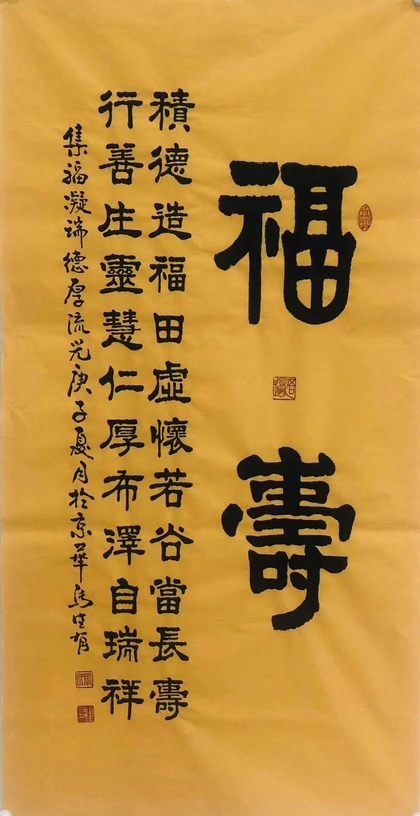 福壽
積德造福田虛懷若谷當長壽
行善生靈慧仁厚布澤自瑞祥
集福凝瑞德厚流光庚子夏月於京華